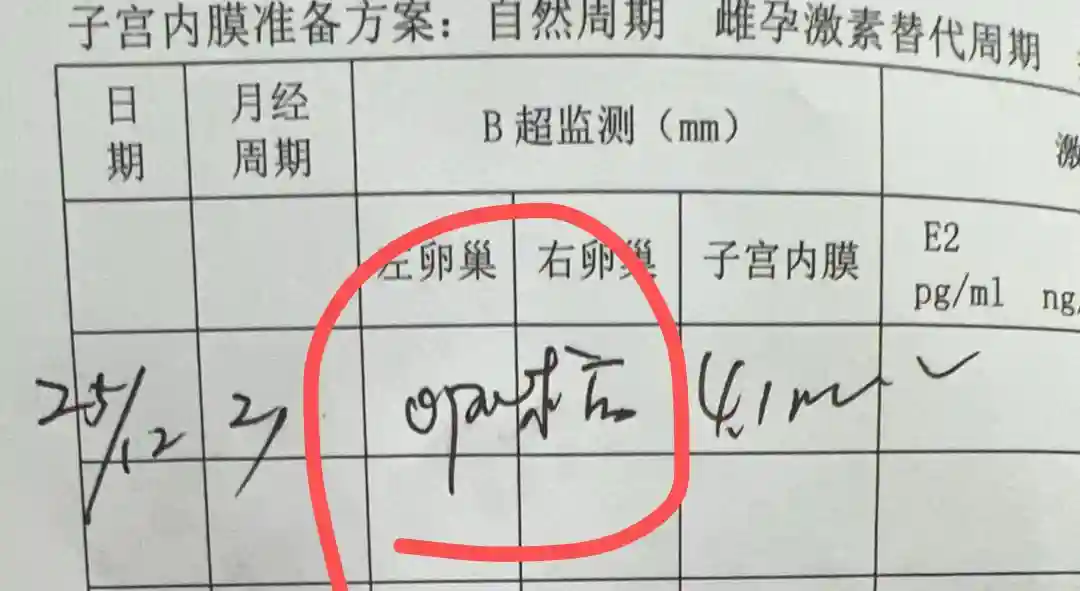 子宫内膜准备方案：自然周期 雌孕激素替代周期
日期 月经周期 B超监测（mm） 激
左卵巢 右卵巢 子宫内膜 E2 pg/ml ng/
25/12 2) 4.1mm ✓